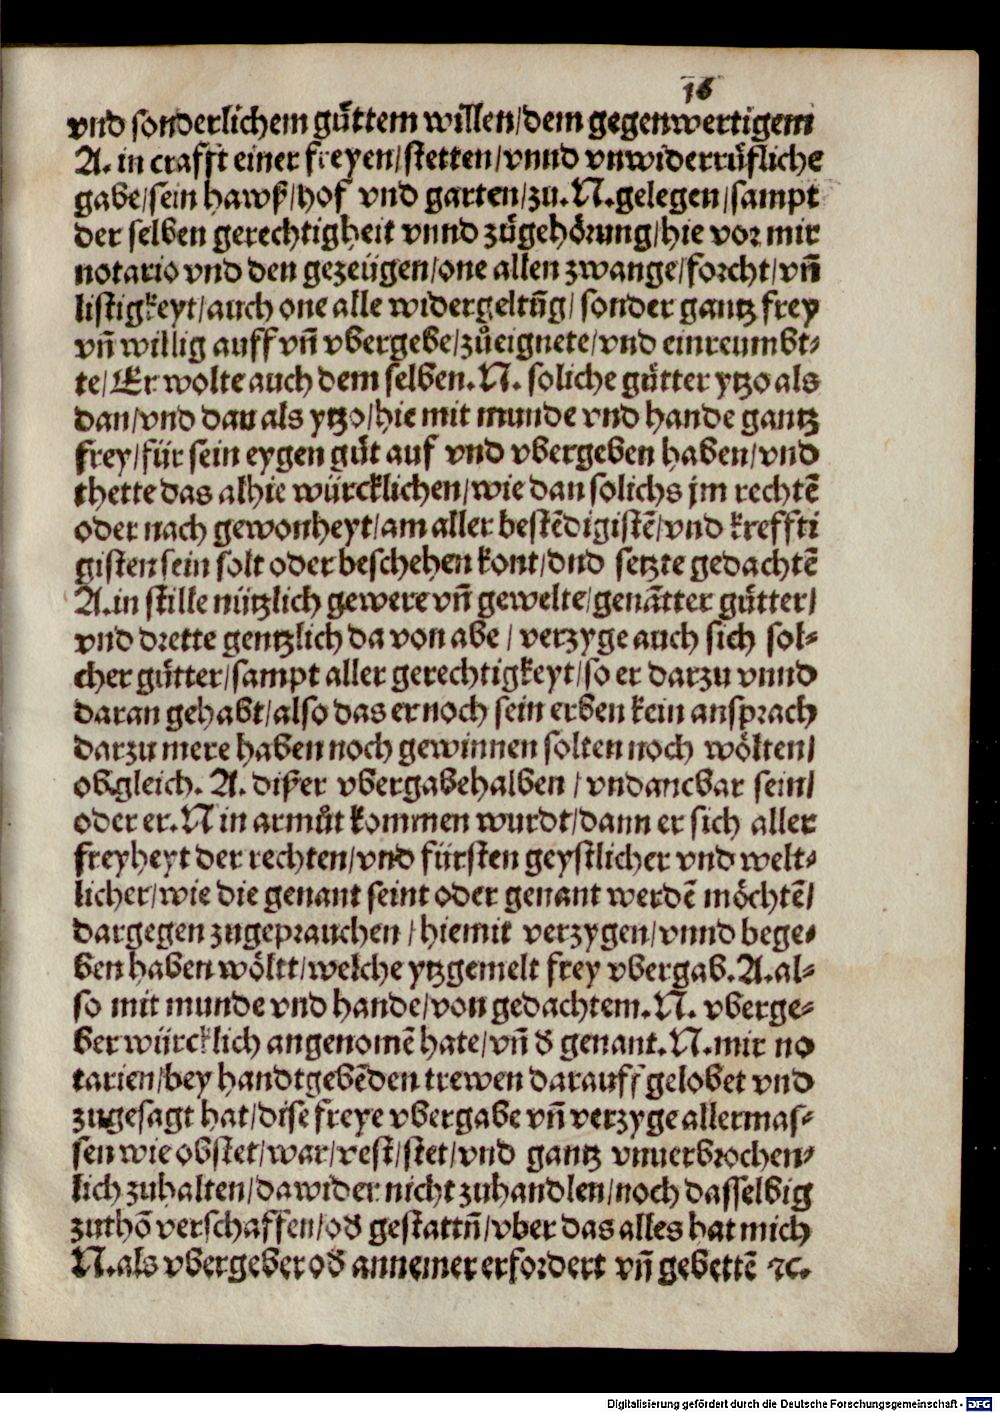 16
vnd sonderlichem gůttem willen/dem gegenwertigem
A. in crafft einer freyen/stetten/vnnd vnwiderrůfliche
gabe/sein hawß/hof vnd garten/zu.N.gelegen/sampt
der selben gerechtigheit vnnd zůgehörung/hie vor mir
notario vnd den gezeügen/one allen zwange/forcht/vñ
listigkeyt/auch one alle widergeltũg/ sonder gantz frey
vñ willig auff vñ vbergebe/zůeignete/vnd einreumbt⸗
te/Er wolte auch dem selben.N. soliche gůtter ytzo als
dan/vnd dau als ytzo/hie mit munde vnd hande gantz
frey/für sein eygen gůt auf vnd vbergeben haben/vnd
thette das alhie würcklichen/wie dan solichs jm rechtẽ
oder nach gewonheyt/am aller bestẽdigistẽ/vnd kreffti
gisten sein solt oder beschehen kont/dnd setzte gedachtẽ
A.in stille nützlich gewere vñ gewelte/genãtter gůtter/
vnd drette gentzlich da von abe / verzyge auch sich sol⸗
cher gůtter/sampt aller gerechtigkeyt/so er darzu vnnd
daran gehabt/also das er noch sein erben kein ansprach
darzu mere haben noch gewinnen solten noch wölten/
obgleich. A. dißer vbergabehalben / vndancbar sein/
oder er.N in armůt kommen wurdt/dann er sich aller
freyheyt der rechten/vnd fürsten geystlicher vnd welt⸗
licher/wie die genant seint oder genant werdẽ möchtẽ/
dargegen zugeprauchen / hiemit verzygen/vnnd bege⸗
ben haben wöltt/welche ytzgemelt frey vbergab.A.al⸗
so mit munde vnd hande/von gedachtem.N. vberge⸗
ber würcklich angenomẽ hate/vñ d̃ genant.N.mir no
tarien/bey handtgebẽden trewen darauff gelobet vnd
zugesagt hat/dise freye vbergabe vñ verzyge allermas⸗
sen wie obstet/war/vest/stet/vnd gantz vnuerbrochen⸗
lich zuhalten/dawider nicht zuhandlen/noch dasselbig
zuthõ verschaffen/od̃ gestattñ/vber das alles hat mich
N.als vbergeber od̃ annemer erfordert vñ gebettẽ ⁊c.
Digitalisierung gefördert durch die Deutsche Forschungsgemeinschaft - DFG